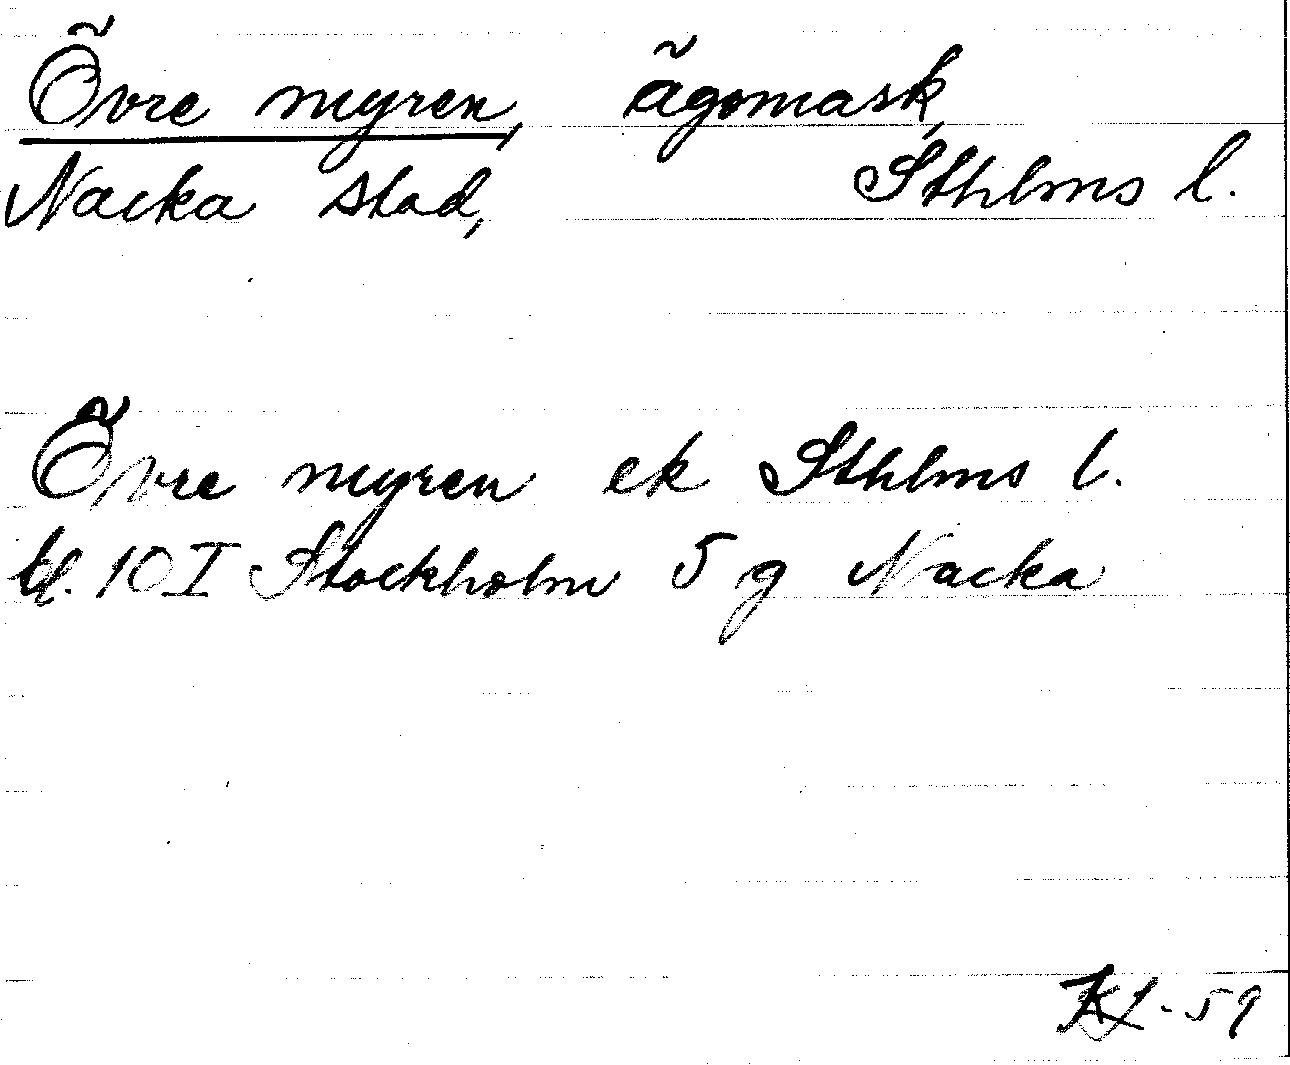 Övre myren, ägomask,
Nacka stad, Sthlms l.
Övre myren ek Sthlms l.
bl. 10 I Stockholm 5 g Nacka
-59